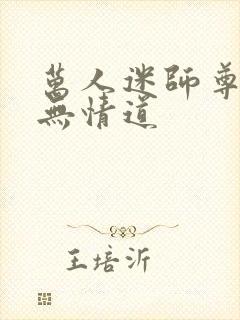 萬人迷師尊
無情道
王培沂